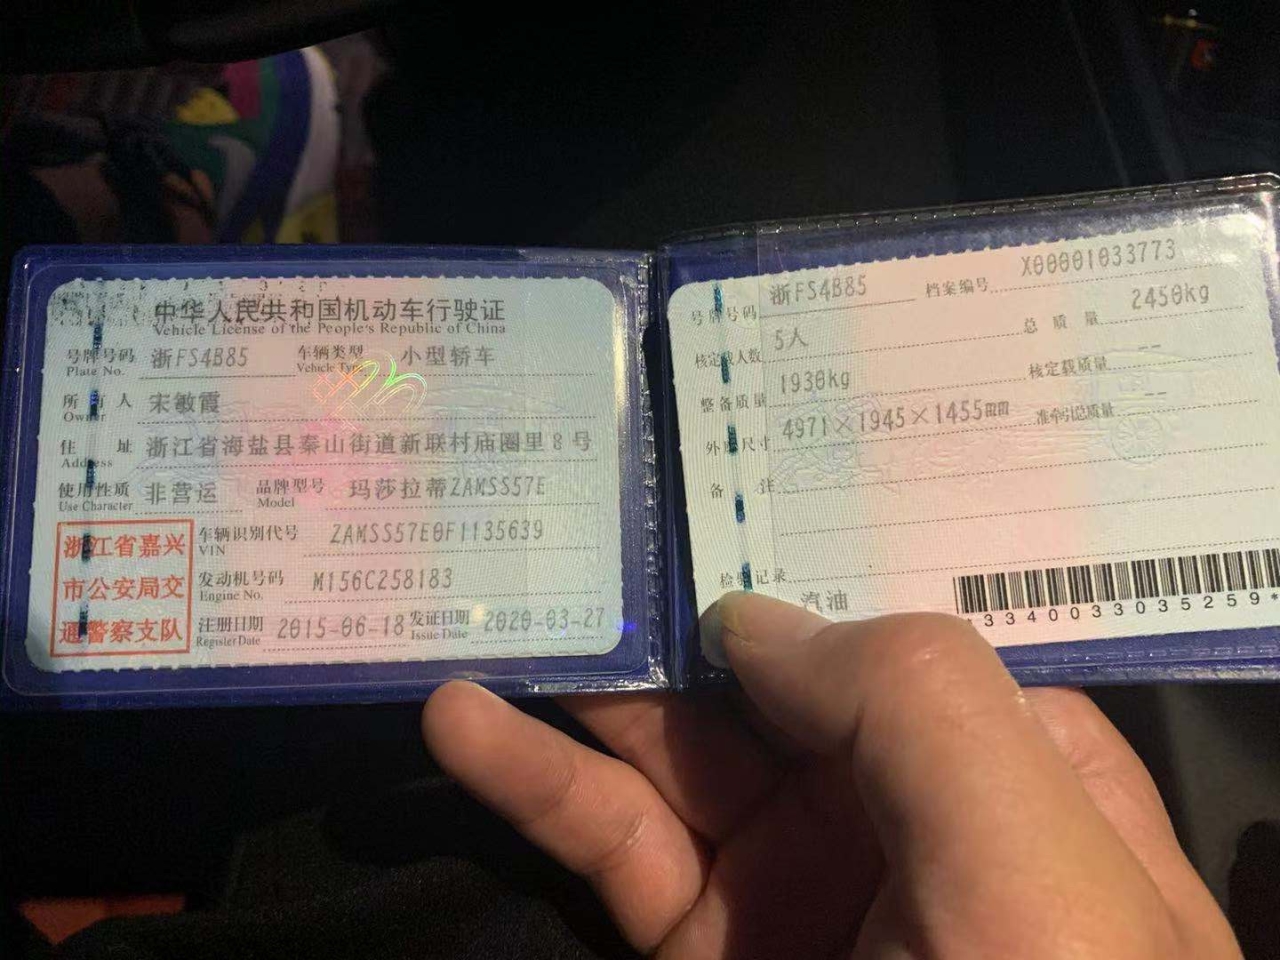 中华人民共和国机动车行驶证
Vehicle License of the People's Republic of China
号牌号码 浙FS4B85 车辆类型 小型轿车
Plate No. Vehicle Type
所有人 宋敏霞
Owner
住址 浙江省海盐县秦山街道新联村庙圈里8号
Address
使用性质 非营运 品牌型号 玛莎拉蒂ZAMSS57E
Use Character Model
浙江省嘉兴
市公安局交
通警察支队
车辆识别代号 ZAMSS57E0F1135639
VIN
发动机号码 M156C258183
Engine No.
注册日期 2015-06-18 发证日期 2020-03-27
Register Date Issue Date
号牌号码 浙FS4B85 档案编号 X00001033773
核定载人数 5人 总质量 2450kg
整备质量 1930kg 核定载质量 --
外廓尺寸 4971×1945×1455mm 准牵引总质量 --
备注
检验记录
汽油
*3340033035259*